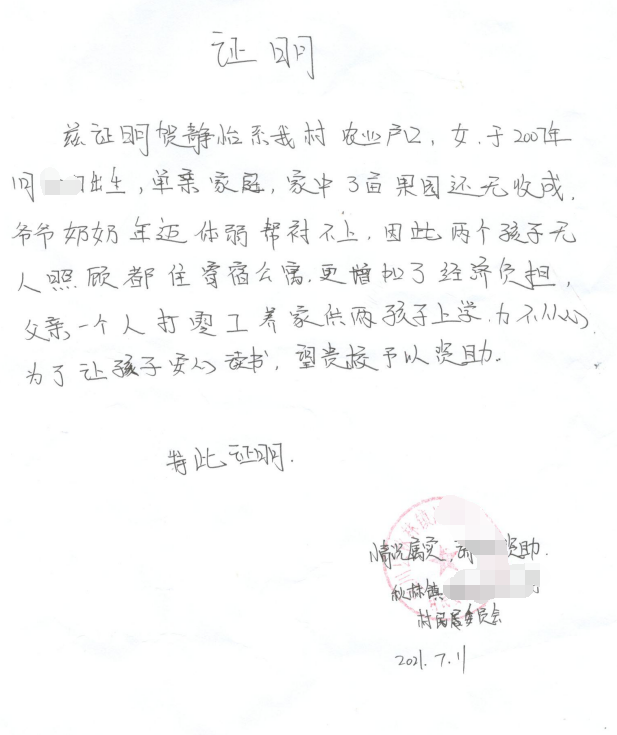 证明
兹证明贺静怡系我村农业户口，女，于2007年
1月 出生，单亲家庭，家中3亩果园还无收成，
爷爷奶奶年迈体弱帮衬不上，因此两个孩子无
人照顾都住寄宿公寓，更增加了经济负担，
父亲一个人打零工养家供两孩子上学，力不从心，
为了让孩子安心读书，望贵校予以资助。
特此证明.
情况属实， 资助.
秋林镇
村民委员会
2021.7.11